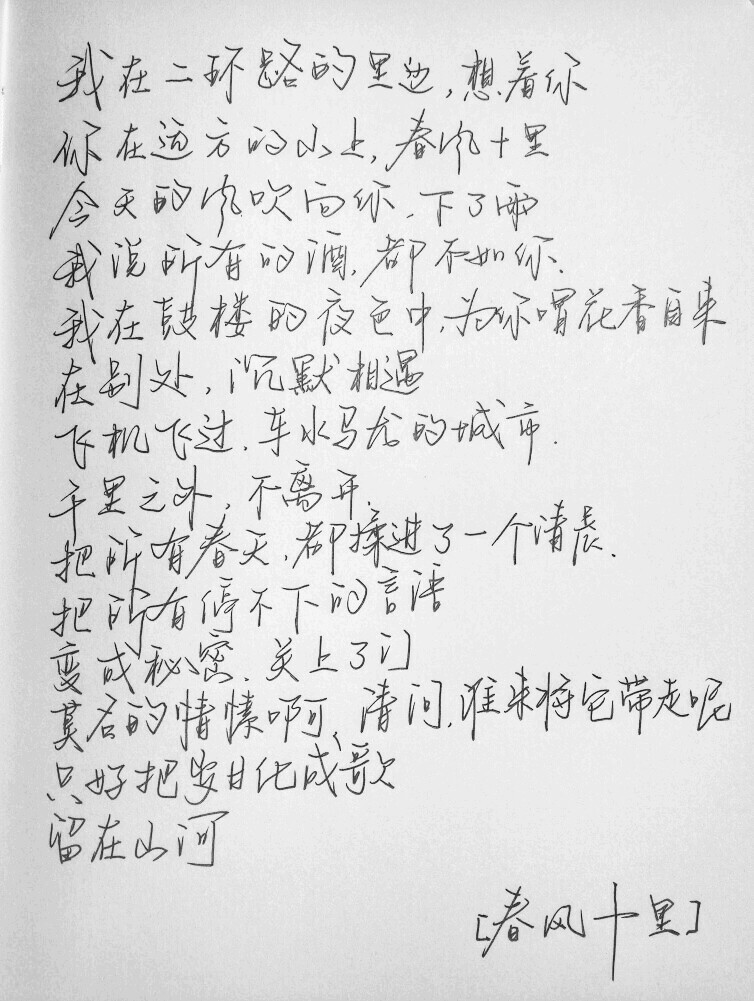 我在二环路的里边,想着你
你在远方的山上,春风十里
今天的风吹向你,下了雨
我说所有的酒,都不如你.
我在鼓楼的夜色中,为你唱花香自来
在别处,沉默相遇
飞机飞过,车水马龙的城市.
千里之外,不离开.
把所有春天,都揉进了一个清晨.
把所有停不下的言语
变成秘密,关上了门
莫名的情愫啊,请问,谁来将它带走呢
只好把岁月化成歌
留在山河
[春风十里]